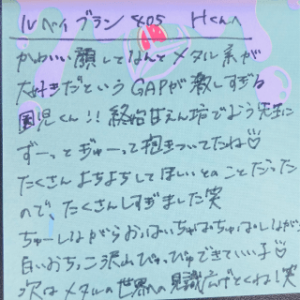 ルベイブラン 405 Hくんへ
かわいい顔してなんとメタル系が
大好きだというGAPが激しすぎる
園児くん!! 終始甘えん坊でよう先生に
ずーっとぎゅーって抱きついてたね♡
たくさんよちよちしてほしいとのことだった
ので、たくさんしすぎました笑
ちゅーしながらおっぱいちゅぱちゅぱしながら
白いおちっこ沢山ぴゅっぴゅできていい子♡
次はメタルの世界への見識広げとくね!笑